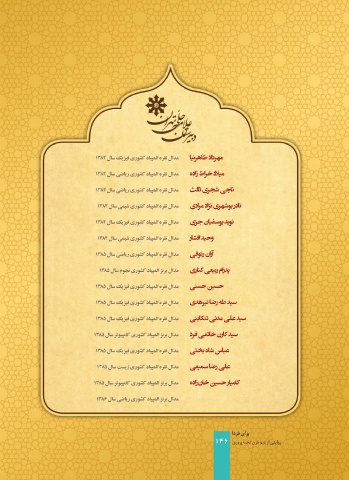 دبیرستان علامه حلی تهران
مهرداد طاهرنیا مدال نقره المپیاد کشوری فیزیک، سال ۱۳۸۴
میلاد خراط زاده مدال نقره المپیاد کشوری ریاضی سال ۱۳۸۴
ناجی شجیری ثالث مدال نقره المپیاد کشوری ریاضی سال ۱۳۸۴
نادر بوشهری نژاد مرادی مدال نقره المپیاد کشوری شیمی سال ۱۳۸۴
نوید یوسفیان جزی مدال نقره المپیاد کشوری فیزیک، سال ۱۳۸۴
وحید افشار مدال نقره المپیاد کشوری شیمی سال ۱۳۸۴
آران رئوفی مدال نقره المپیاد کشوری ریاضی سال ۱۳۸۵
پدرام ربیعی کناری مدال برنز المپیاد کشوری نجوم سال ۱۳۸۵
حسین حسنی مدال نقره المپیاد کشوری فیزیک، سال ۱۳۸۵
سید طه رضا نیرهدی مدال نقره المپیاد کشوری فیزیک، سال ۱۳۸۵
سید علی مدنی تنکابنی مدال نقره المپیاد کشوری فیزیک، سال ۱۳۸۵
سید کارن خاتمی فرد مدال برنز المپیاد کشوری کامپیوتر سال ۱۳۸۵
عباس شاه بخشی مدال نقره المپیاد کشوری فیزیک، سال ۱۳۸۵
علی رضا سمیعی مدال نقره المپیاد کشوری زیست سال ۱۳۸۵
کامیار حسین خان‌زاده مدال برنز المپیاد کشوری کامپیوتر سال ۱۳۸۵
مدال برنز المپیاد کشوری ریاضی سال ۱۳۸۶
برای فردا
۱۴۶